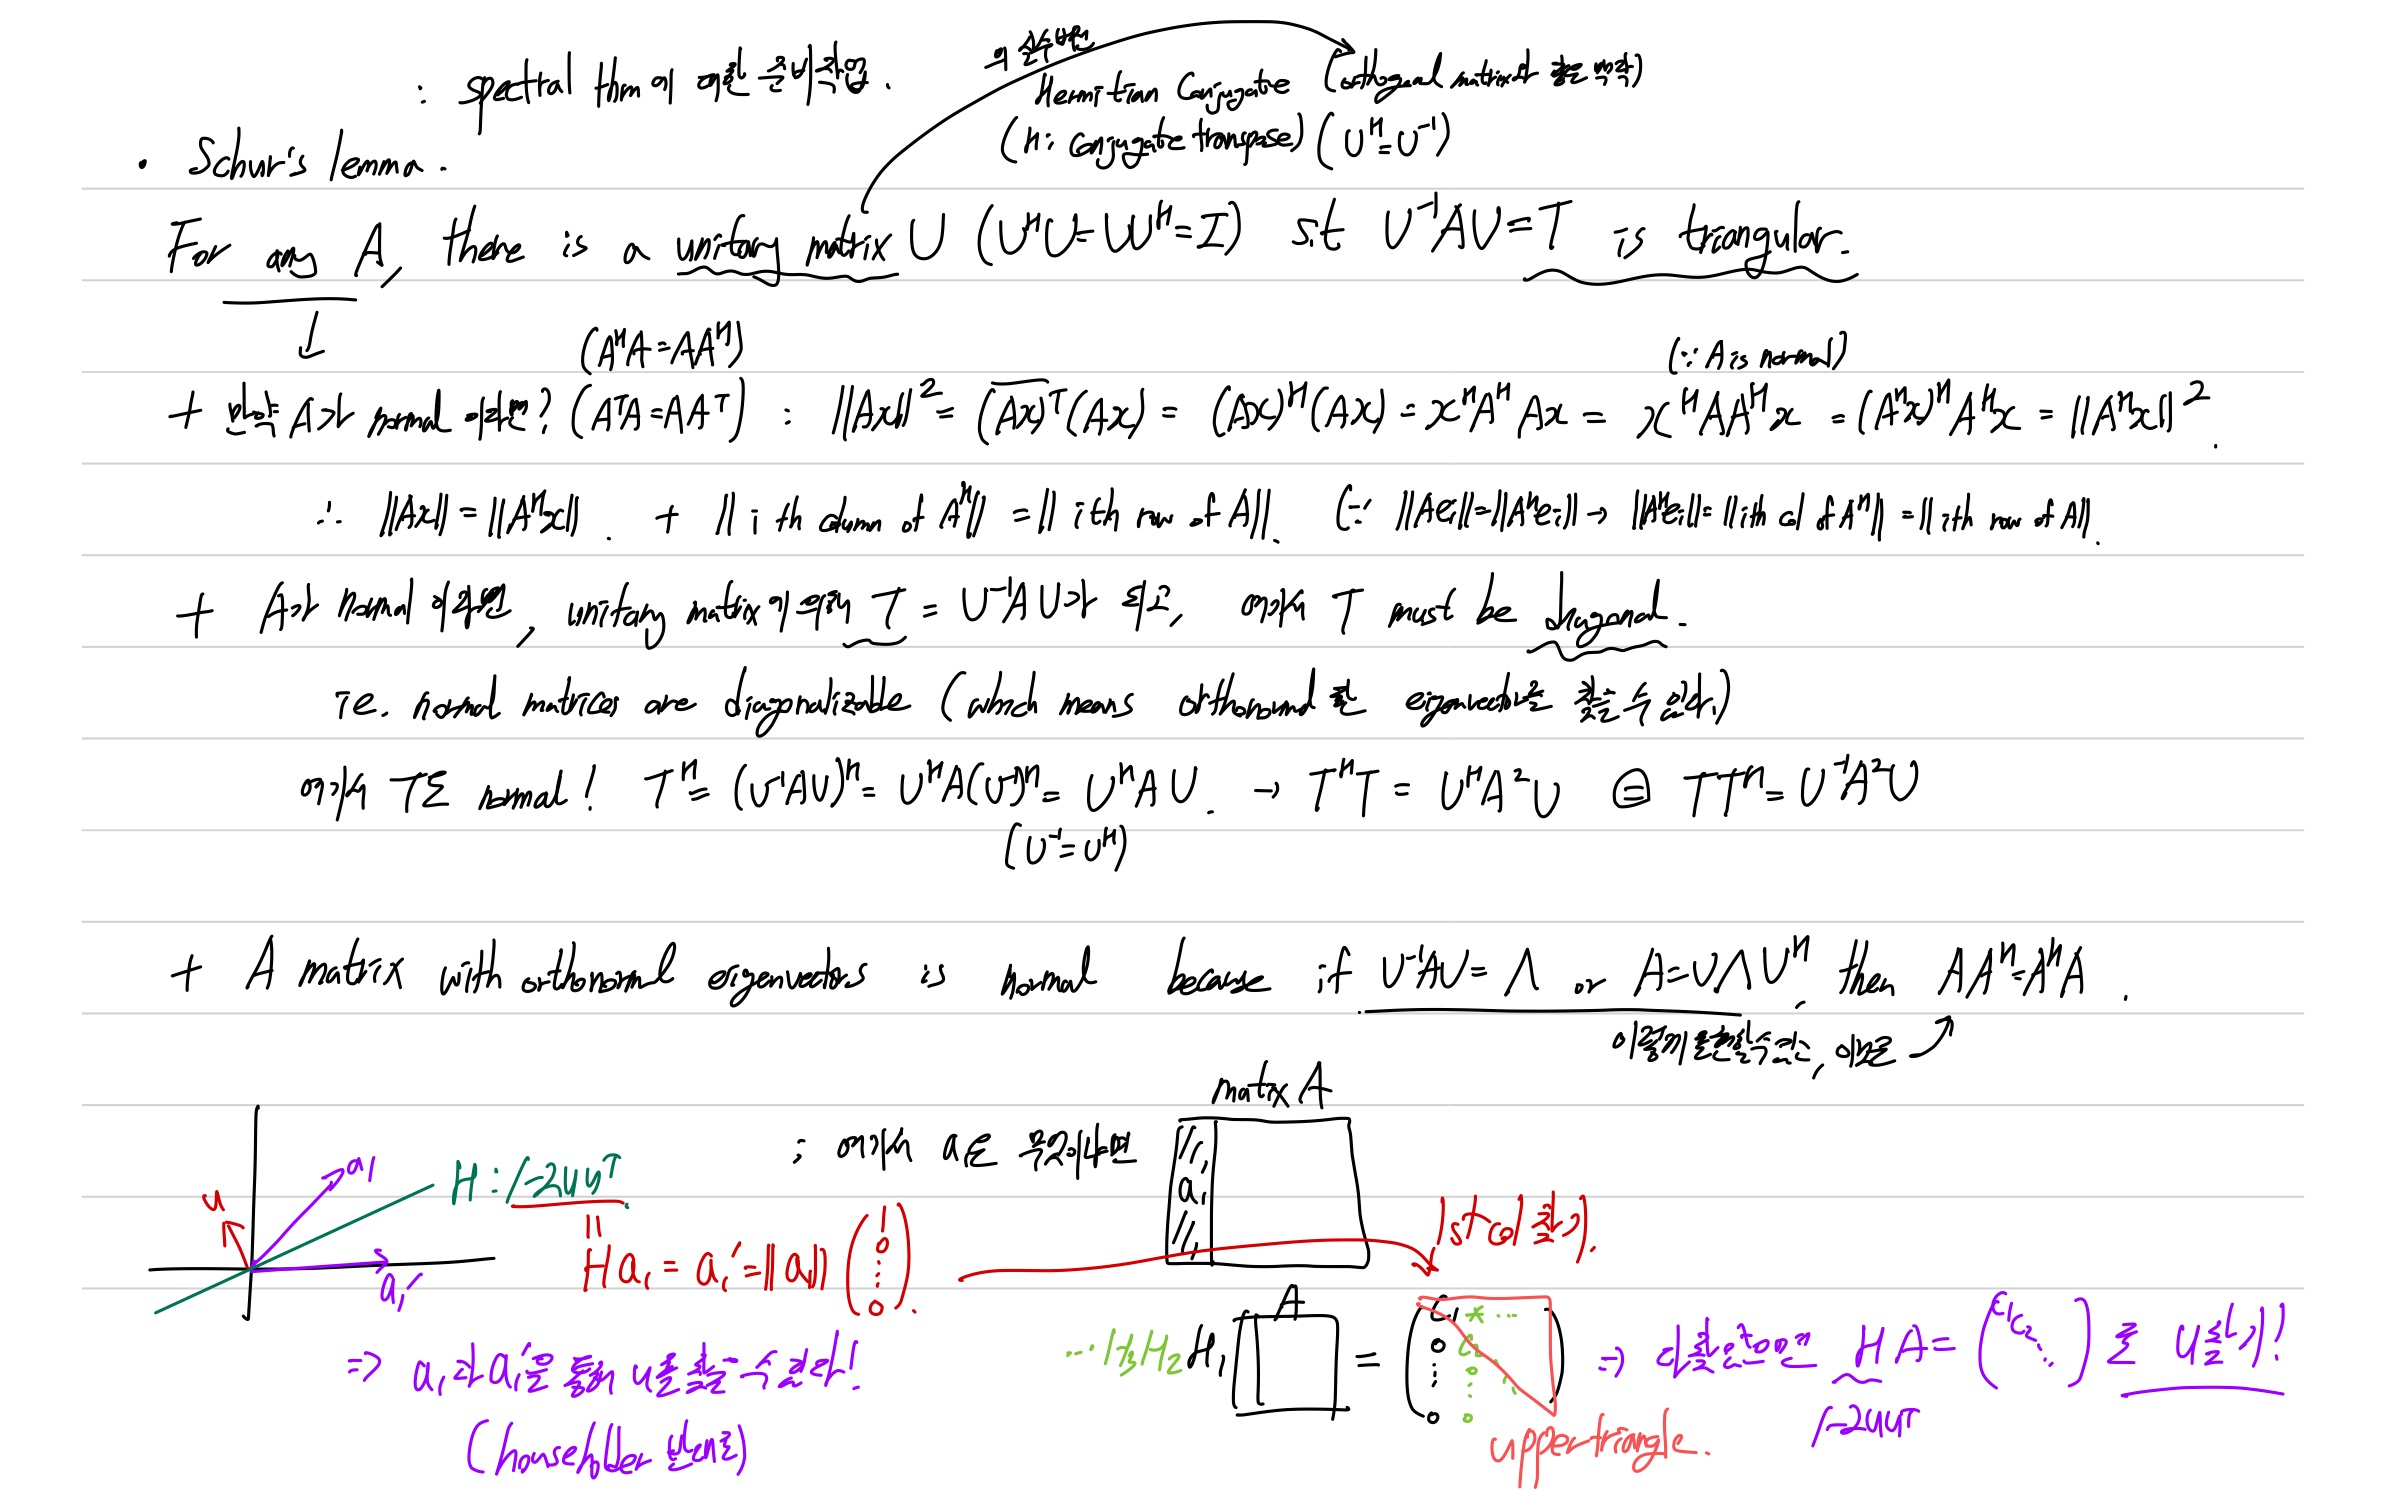 : spectral thm에 대한 준비작업.
의 실수버전
Hermitian Conjugate (orthogonal matrix와 같은 맥락)
(H: conjugate transpose) (U^H = U^-1)
• Schur's lemma.
For any A, there is a unitary matrix U (U^H U = UU^H = I) st U^-1 AU = T is triangular.
(A^H A = AA^H)
(∵ A is normal)
+ 만약 A가 normal 이라면? (A^T A = AA^T) : ||Ax||^2 = (A̅x̅)^T (Ax) = (Ax)^H (Ax) = x^H A^H Ax = x^H AA^H x = (A^H x)^H A^H x = ||A^H x||^2.
∴ ||Ax|| = ||A^H x||. + ||i th column of A^H|| = ||i th row of A||. (∵ ||Ae_i|| = ||A^H e_i|| → ||A^H e_i|| = ||ith col of A^H|| = ||ith row of A||.
+ A가 normal 이라면, unitary matrix에 의해 T = U^-1 A U가 되고, 여기서 T must be diagonal.
ie. normal matrices are diagonalizable (which means orthonormal한 eigenvector을 찾을 수 있다.)
여기서 T도 normal! T^H = (U^-1 AU)^H = U^H A(U^-1)^H = U^H A U. → T^H T = U^H A^2 U = TT^H = U^-1 A^2 U
(U^-1 = U^H)
+ A matrix with orthonormal eigenvectors is normal because if U^-1 AU = Λ or A = UΛU^H, then AA^H = A^H A.
이렇게 표현할 수 있는, 이므로
matrix A
a1
u
H: I-2uu^T
; 여기서 a1은 무엇이냐면
a1
Ha1 = a1' = ||a1|| (1 0 ⋮ 0).
1st col 완성).
a1'
A
⋯ H3 H2 H1 = (c1 0 ⋮ 0 * ⋯ c2 0 ⋮ 0)
⇒ a1과 a1'을 통해 u를 찾을 수 있다!
→ HA = (c1 c2 ⋱)
I-2uu^T
upper triangle.
(householder 반사로)